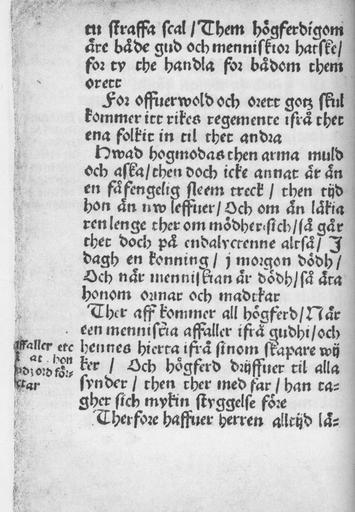 tu straffa scal / Them högferdigom
äre både gud och menniskior hatske /
for ty the handla for bådom them
orett
For offuerwold och orett gotz skul
kommer itt rikes regemente ifrå thet
ena folkit in til thet andra
Hwad hogmodas then arma muld
och aska / then doch icke annat är än
en fåfengelig sleem treck / then tijd
hon än nw leffuer / Och om än läkia
ren lenge ther om mödher sich / så går
thet doch på endalyctenne altså / J
dagh en konning / j morgon dödh /
Och när menniskian är dödh / så äta
honom ormar och madtkar
Ther aff kommer all högferd / När
een menniscia affaller ifrå gudhi / och
hennes hierta ifrå sinom skapare wij
ker / Och högferd drijffuer til alla
synder / then ther med far / han ta-
gher sich mykin styggelse före
Therfore haffuer herren alltijd lä-
affaller etc
at hon
ord för-